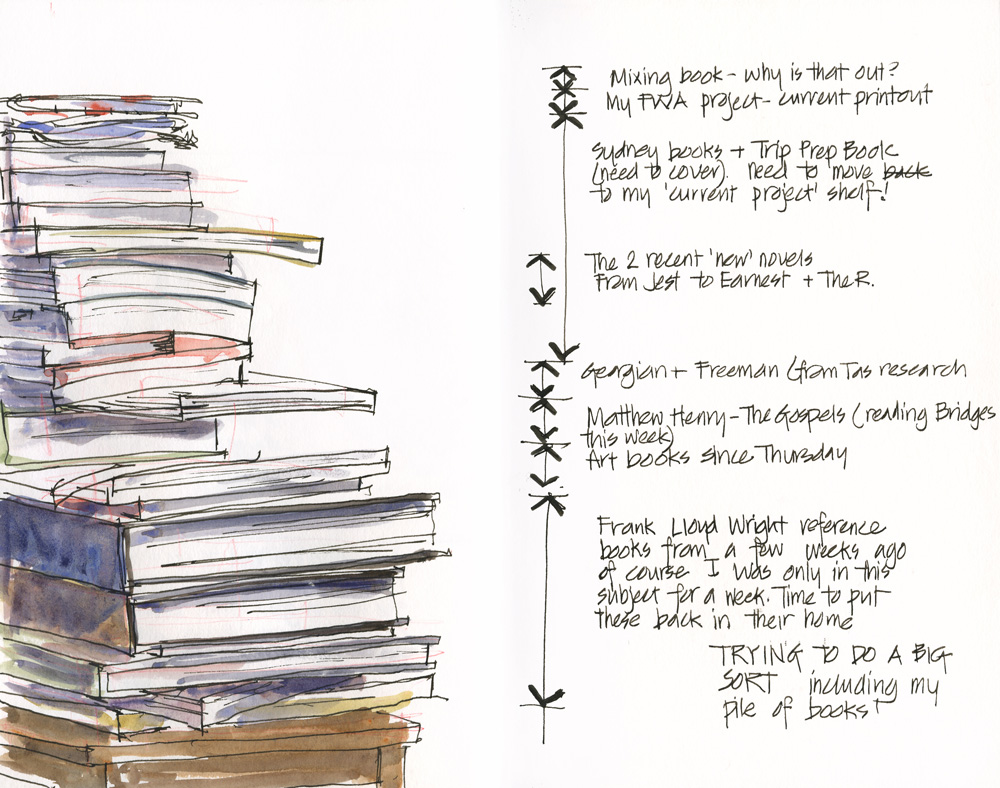 Mixing book - why is that out?
My FWA project - current printout
Sydney books + Trip Prep Book
(need to cover). need to move back
to my 'current project' shelf!
The 2 recent 'new' novels
From Jest to Earnest + The R.
Georgian + Freeman (from Tas research
Matthew Henry - The Gospels (reading Bridges
this week)
Art books since Thursday
Frank Lloyd Wright reference
books from a few weeks ago
of course I was only in this
subject for a week. Time to put
these back in their home
TRYING TO DO A BIG
SORT including my
pile of books!